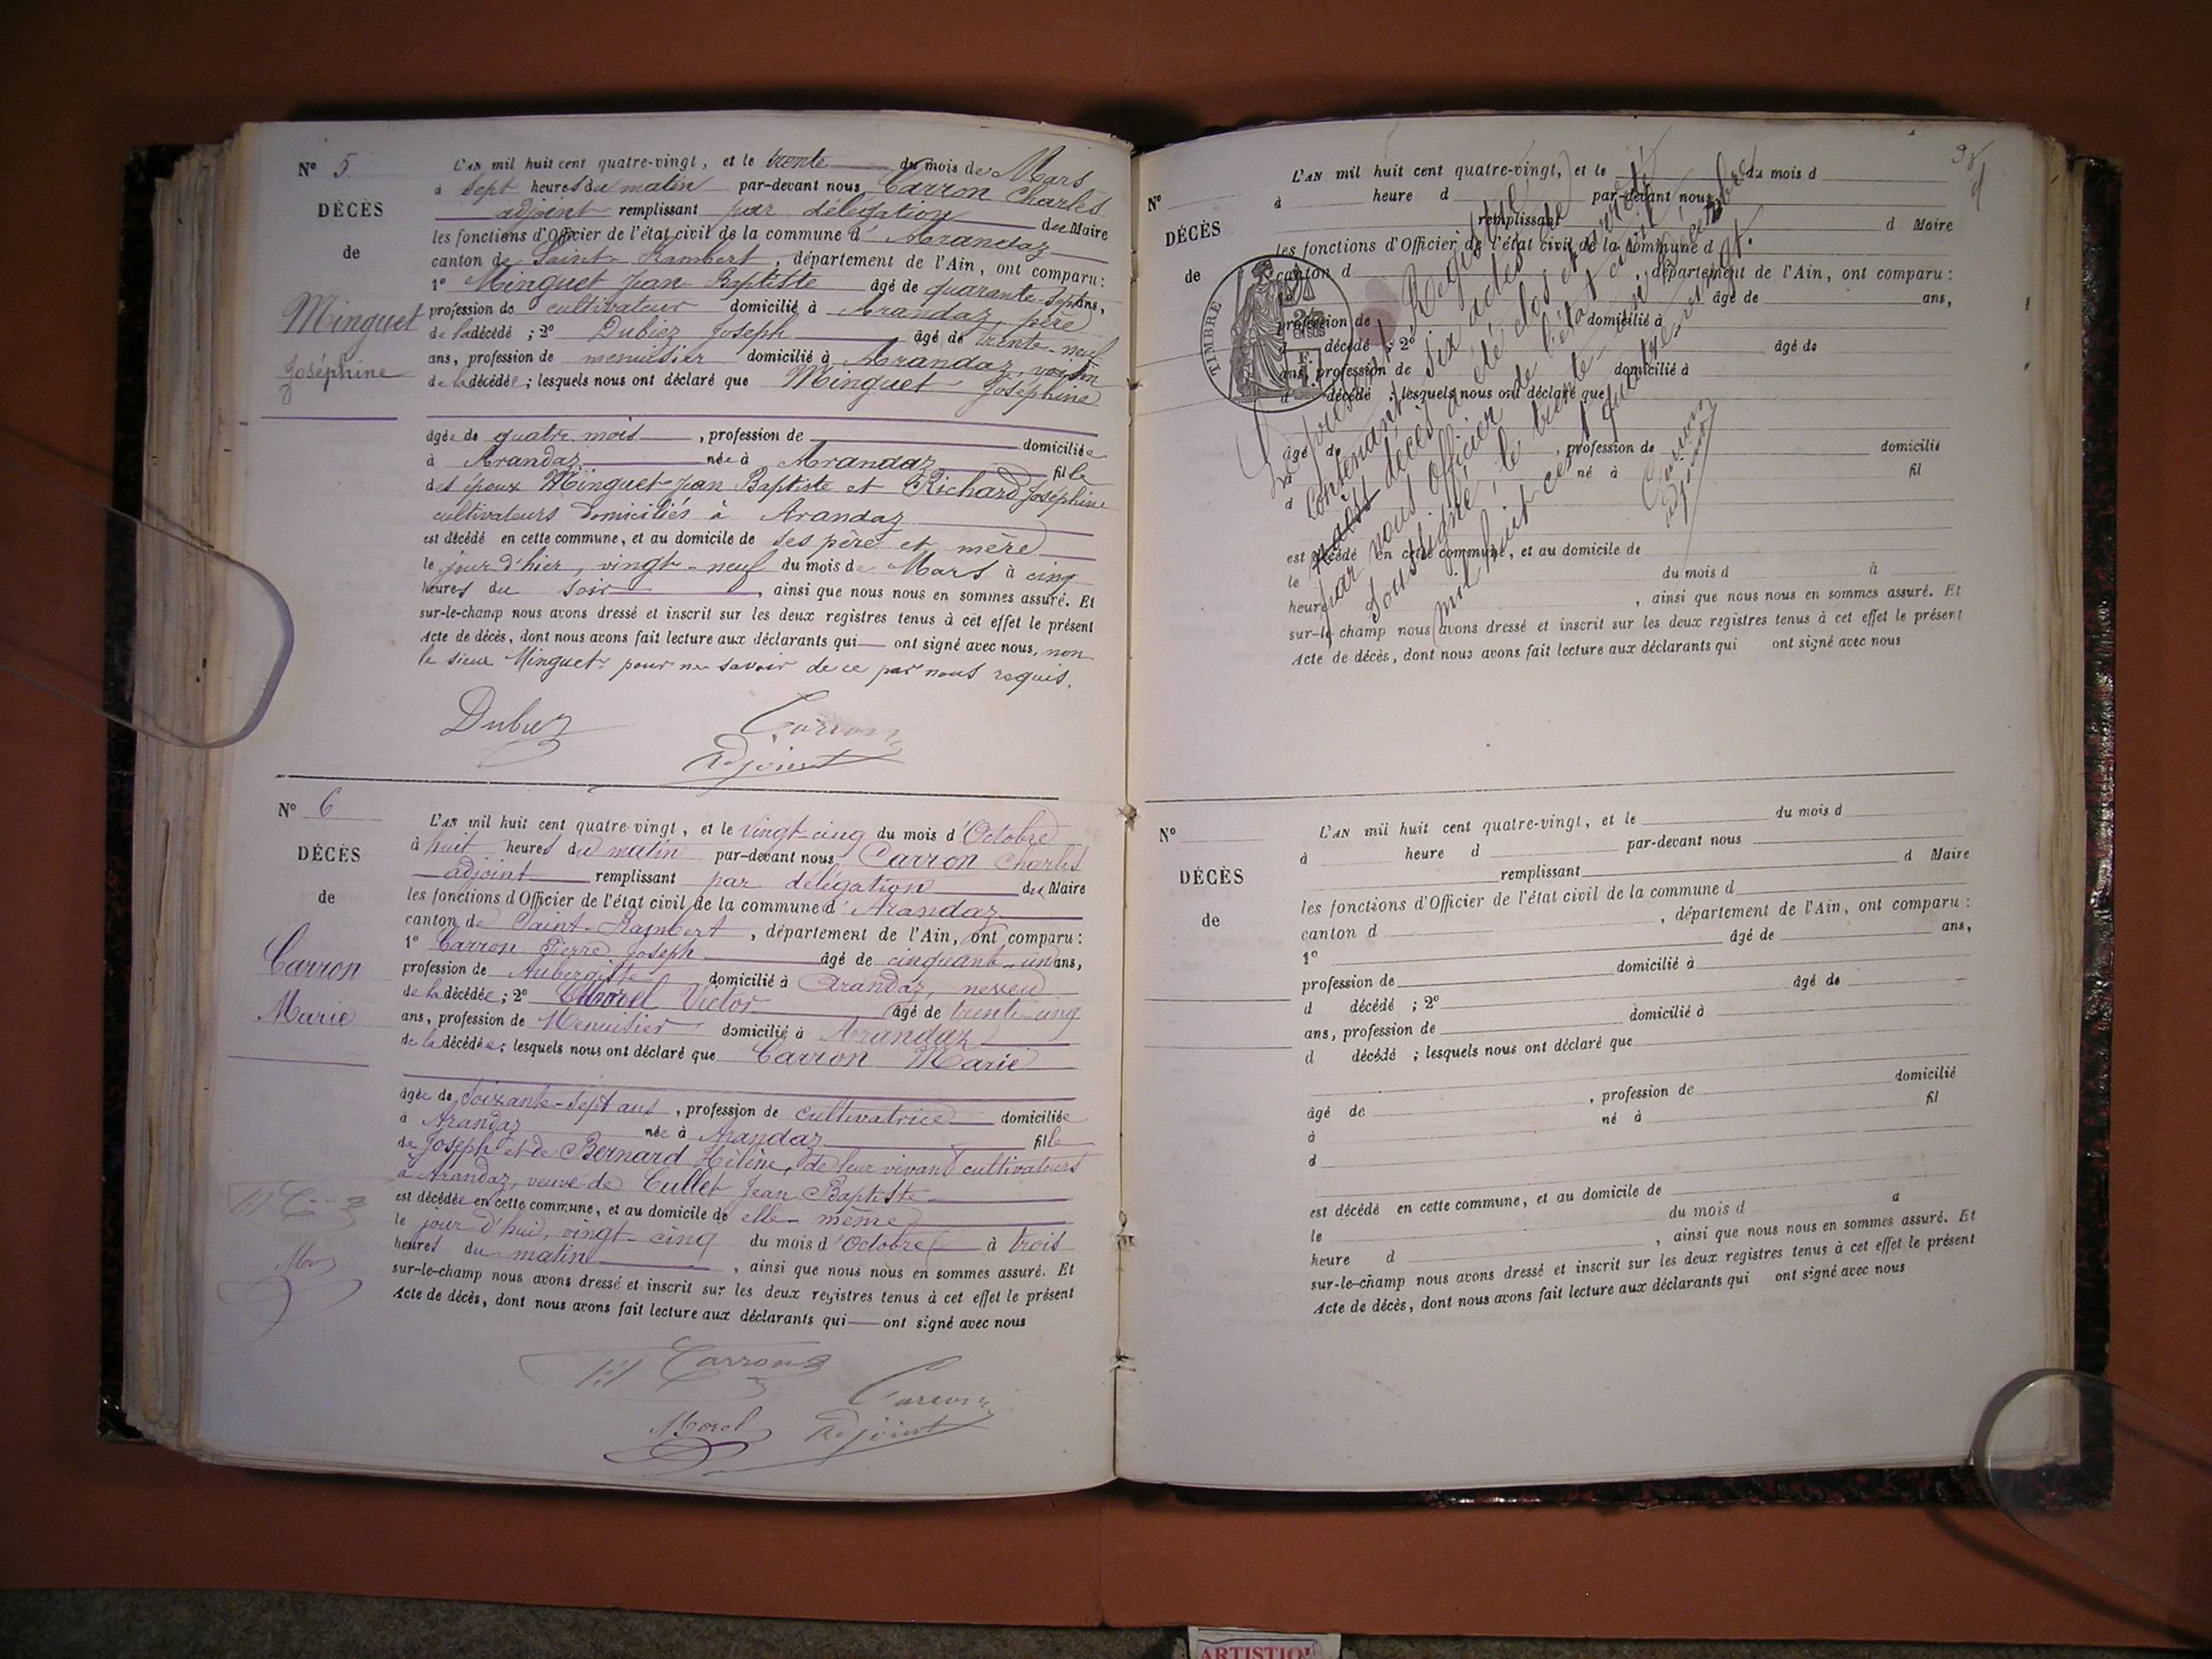 N° 5
DÉCÈS
de
Minguet
Joséphine
L'AN mil huit cent quatre-vingt, et le trente du mois de Mars
à sept heures du matin par-devant nous Carron Charles
adjoint remplissant par délégation du Maire
les fonctions d'Officier de l'état civil de la commune d'Arandaz
canton de Saint-Rambert, département de l'Ain, ont comparu :
1° Minguet Jean Baptiste âgé de quarante-sept ans,
profession de cultivateur domicilié à Arandaz, père
de la décédé ; 2° Dubiez Joseph âgé de trente-neuf
ans, profession de menuisier domicilié à Arandaz, voisin
de la décédée ; lesquels nous ont déclaré que Minguet Joséphine
âgée de quatre mois, profession de domiciliée
à Arandaz née à Arandaz fille
des époux Minguet Jean Baptiste et Richard Joséphine
cultivateurs domiciliés à Arandaz
est décédé en cette commune, et au domicile de ses père et mère
le jour d'hier, vingt-neuf du mois de Mars à cinq
heures du soir, ainsi que nous nous en sommes assuré. Et
sur-le-champ nous avons dressé et inscrit sur les deux registres tenus à cet effet le présent
Acte de décès, dont nous avons fait lecture aux déclarants qui ont signé avec nous, non
le sieur Minguet pour ne savoir de ce par nous requis.
Dubiez
Carron
Adjoint
N° 6
DÉCÈS
de
Carron
Marie
L'AN mil huit cent quatre-vingt, et le vingt-cinq du mois d'Octobre
à huit heures du matin par-devant nous Carron Charles
adjoint remplissant par délégation du Maire
les fonctions d'Officier de l'état civil de la commune d'Arandaz
canton de Saint-Rambert, département de l'Ain, ont comparu :
1° Carron Pierre Joseph âgé de cinquante-un ans,
profession de Aubergiste domicilié à Arandaz, neveu
de la décédée ; 2° Morel Victor âgé de trente-cinq
ans, profession de Menuisier domicilié à Arandaz
de la décédée ; lesquels nous ont déclaré que Carron Marie
âgée de soixante-sept ans, profession de cultivatrice domiciliée
à Arandaz née à Arandaz fille
de Joseph et de Bernard Hélène, de leur vivant cultivateurs
à Arandaz, veuve de Cullet Jean Baptiste
est décédée en cette commune, et au domicile de elle-même
le jour d'hui, vingt-cinq du mois d'Octobre à trois
heures du matin, ainsi que nous nous en sommes assuré. Et
sur-le-champ nous avons dressé et inscrit sur les deux registres tenus à cet effet le présent
Acte de décès, dont nous avons fait lecture aux déclarants qui ont signé avec nous
Carron
Carron
Morel
Adjoint
N°
DÉCÈS
de
L'AN mil huit cent quatre-vingt, et le du mois d
à heure d par-devant nous
remplissant d Maire
les fonctions d'Officier de l'état civil de la commune d
canton d, département de l'Ain, ont comparu :
âgé de ans,
profession de domicilié à
d décédé ; 2° âgé de
ans, profession de domicilié à
d décédé ; lesquels nous ont déclaré que
âgé de, profession de domicilié
à né à fil
d
est décédé en cette commune, et au domicile de
le du mois d à
heure, ainsi que nous nous en sommes assuré. Et
sur-le-champ nous avons dressé et inscrit sur les deux registres tenus à cet effet le présent
Acte de décès, dont nous avons fait lecture aux déclarants qui ont signé avec nous
TIMBRE
Le présent Registre
contenant six actes de
décès a été clos et arrêté
par nous Officier de l'état civil
soussigné, le trente-un Décembre
mil huit cent quatre-vingt.
Carron
adjoint
N°
DÉCÈS
de
L'AN mil huit cent quatre-vingt, et le du mois d
à heure d par-devant nous
remplissant d Maire
les fonctions d'Officier de l'état civil de la commune d
canton d, département de l'Ain, ont comparu :
1° âgé de ans,
profession de domicilié à
d décédé ; 2° âgé de
ans, profession de domicilié à
d décédé ; lesquels nous ont déclaré que
âgé de, profession de domicilié
à né à fil
d
est décédé en cette commune, et au domicile de
le du mois d à
heure d, ainsi que nous nous en sommes assuré. Et
sur-le-champ nous avons dressé et inscrit sur les deux registres tenus à cet effet le présent
Acte de décès, dont nous avons fait lecture aux déclarants qui ont signé avec nous